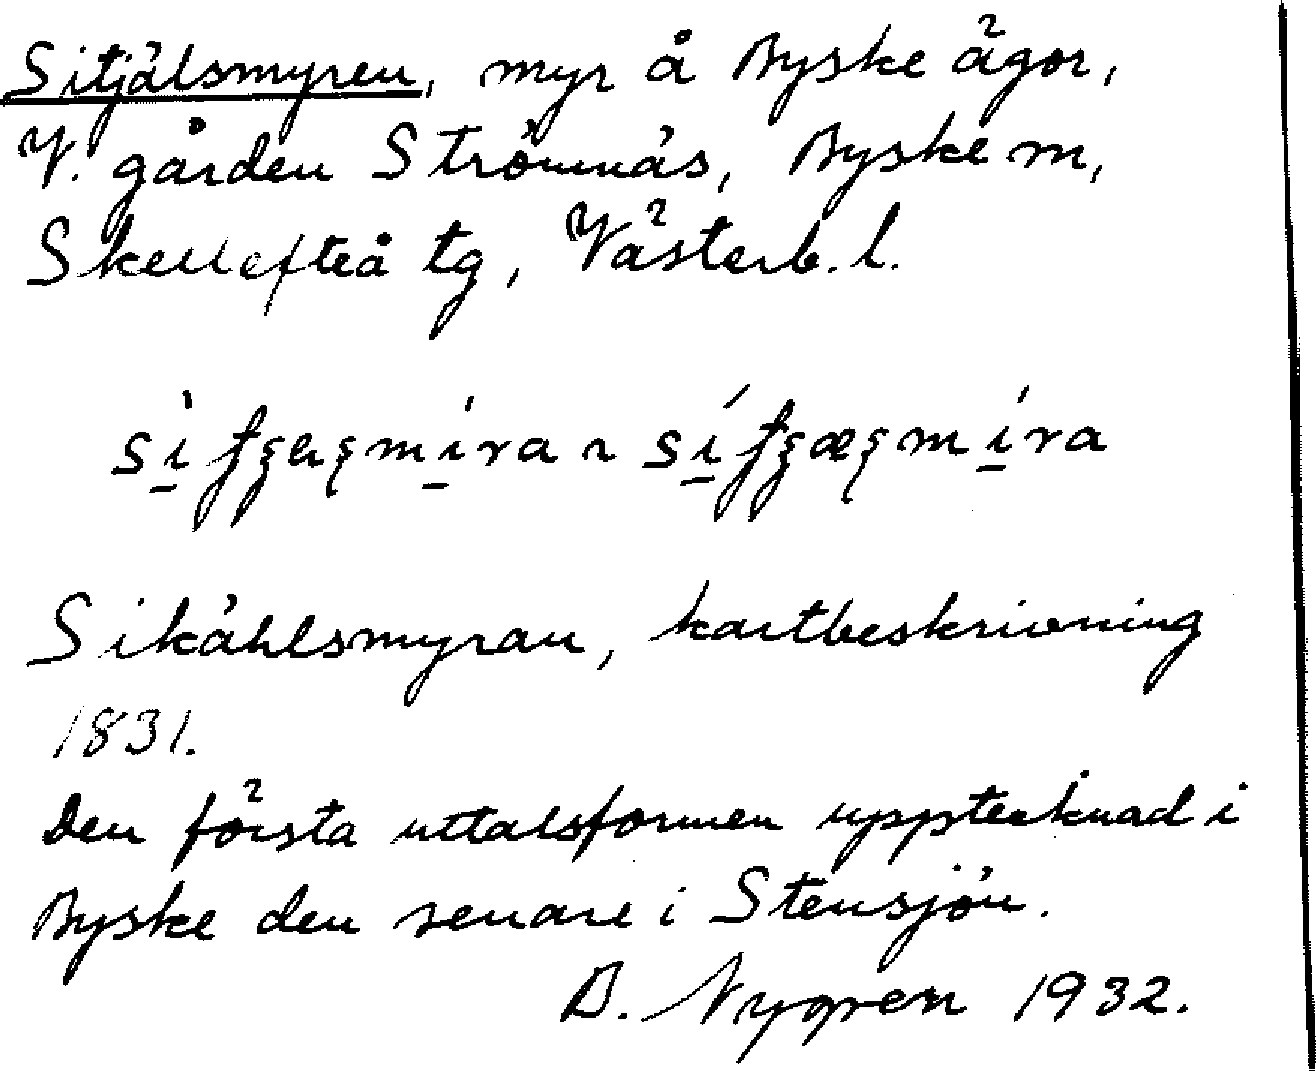 Sitjälsmyren, myr å Byske ägor,
V. gården Strömnäs, Byske sn,
Skellefteå tg, Västerb. l.
Sikählsmyran, kartbeskrivning
1831.
Den första uttalsformen upptecknad i
Byske den senare i Stensjön.
B. Nygren 1932.